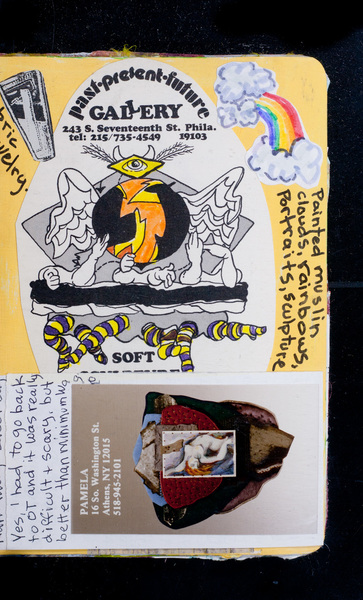 past·present·future
GALLERY
243 S. Seventeenth St. Phila.
tel: 215/735-4549 19103
SOFT
Painted muslin
clouds, rainbows,
portraits, sculpture
Yes, I had to go back
to OT and it was really
difficult + scary, but
better than minimum
PAMELA
16 So. Washington St.
Athens, NY 12015
518-945-2101